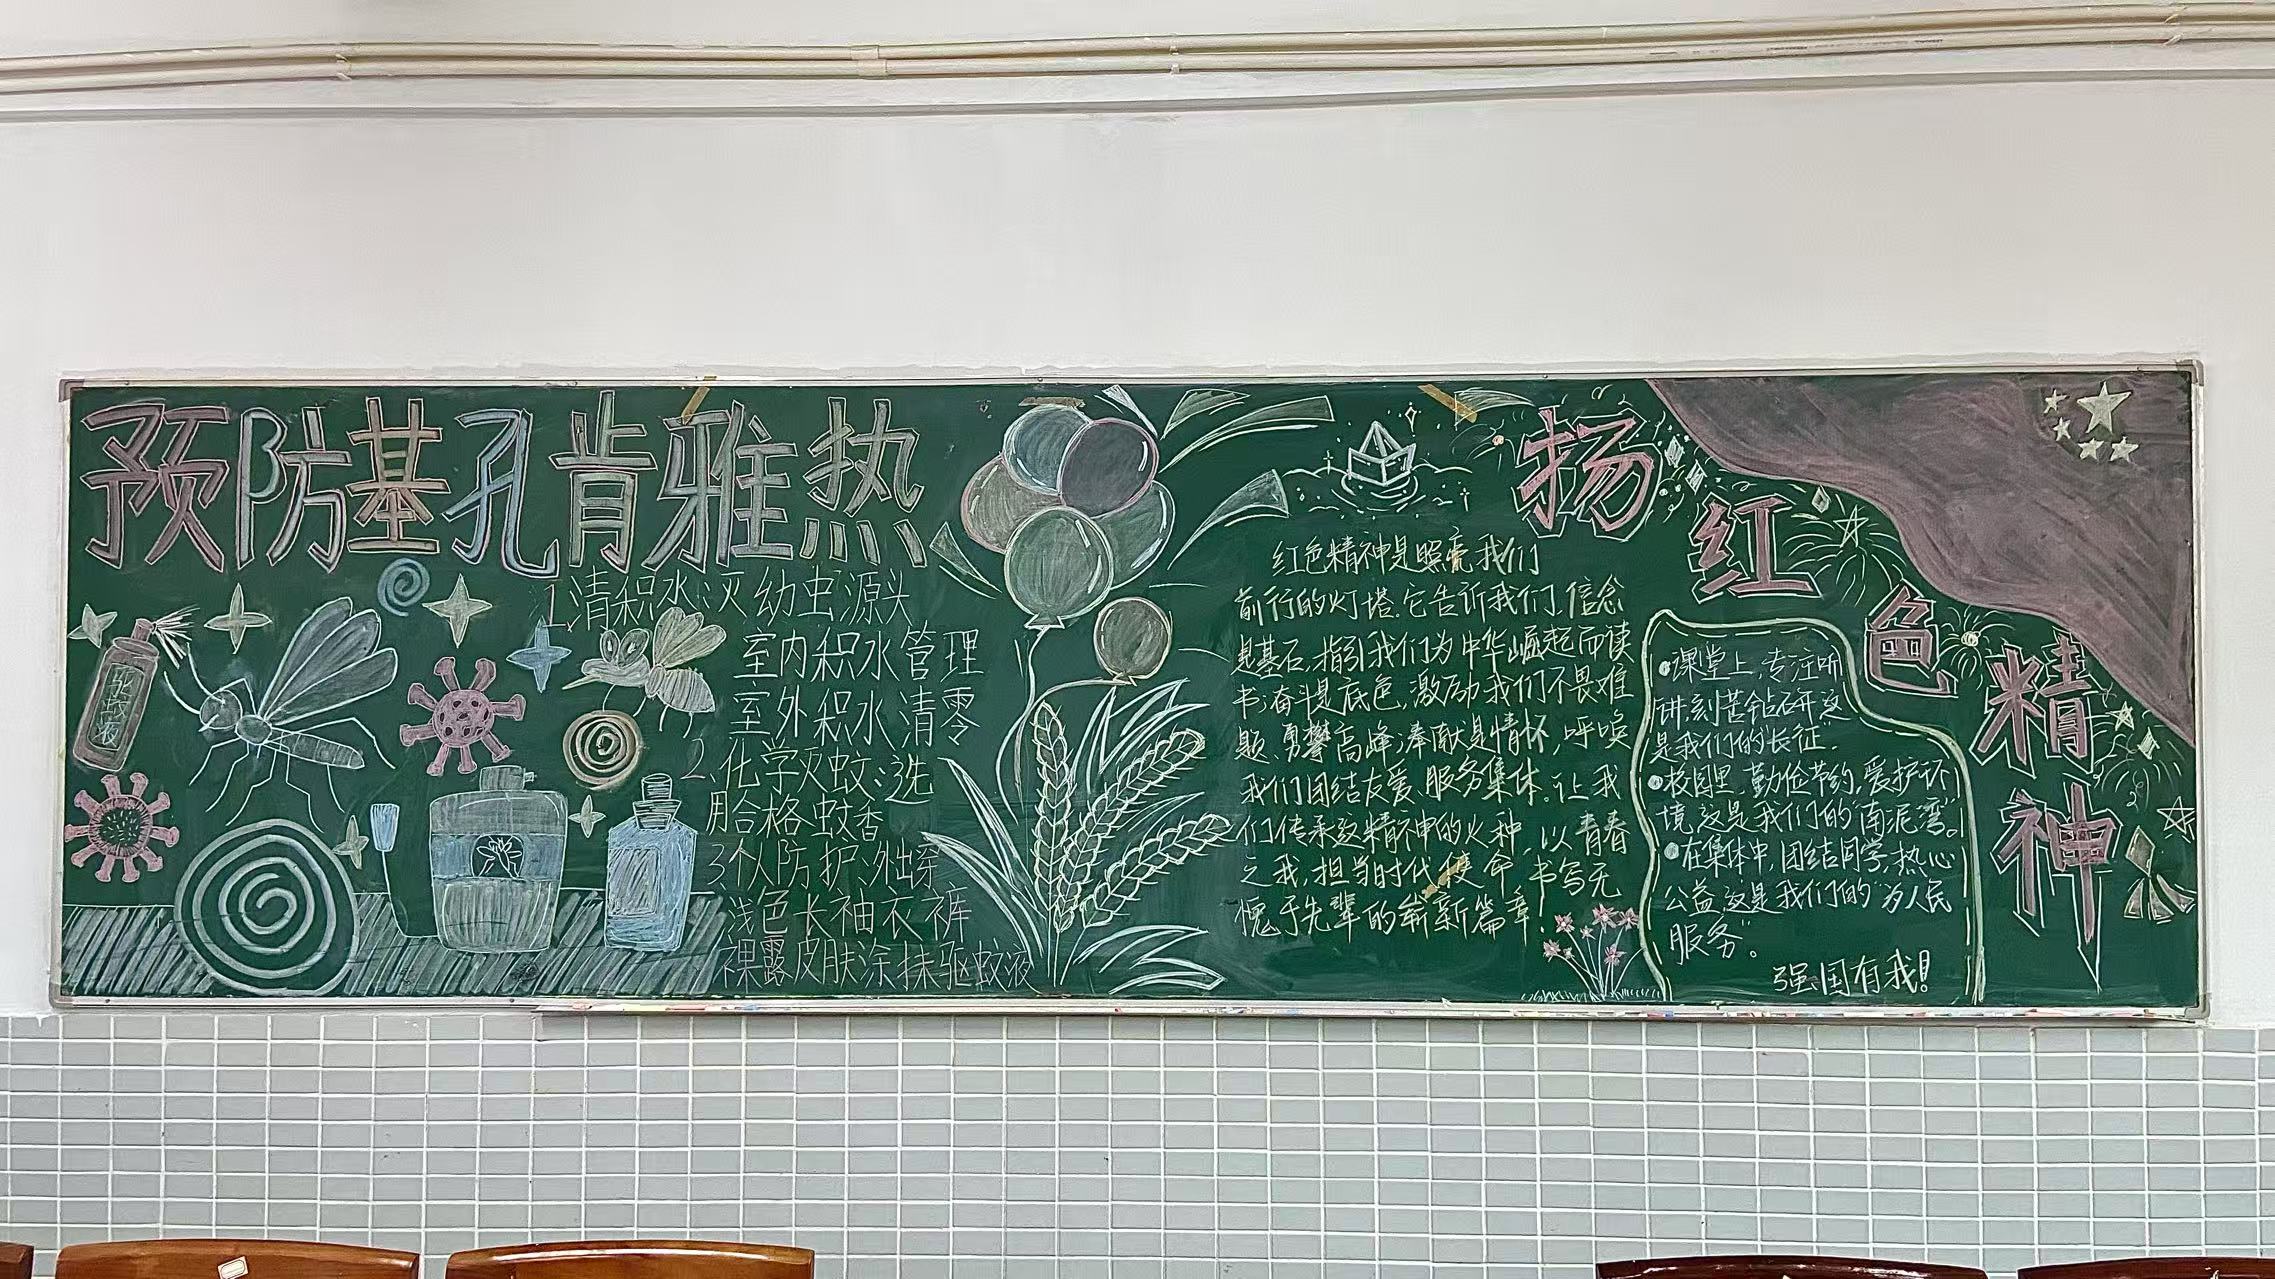 预防基孔肯雅热
驱蚊液
1.清积水:灭幼虫源头
室内积水管理
室外积水清零
2.化学灭蚊:选
用合格蚊香
3个人防护:外出穿
浅色长袖衣裤
裸露皮肤涂抹驱蚊液
扬红色精神
红色精神是照亮我们
前行的灯塔.它告诉我们.信念
是基石,指引我们为中华崛起而读
书;奋斗是底色,激励我们不畏难
题.勇攀高峰;奉献是情怀,呼唤
我们团结友爱.服务集体.让我
们传承这精神的火种,以青春
之我,担当时代使命,书写无
愧于先辈的崭新篇章!
课堂上,专注听
讲.刻苦钻研.这
是我们的长征.
校园里.勤俭节约,爱护环
境,这是我们的"南泥湾"。
在集体中,团结同学,热心
公益,这是我们的"为人民
服务"。
强国有我!